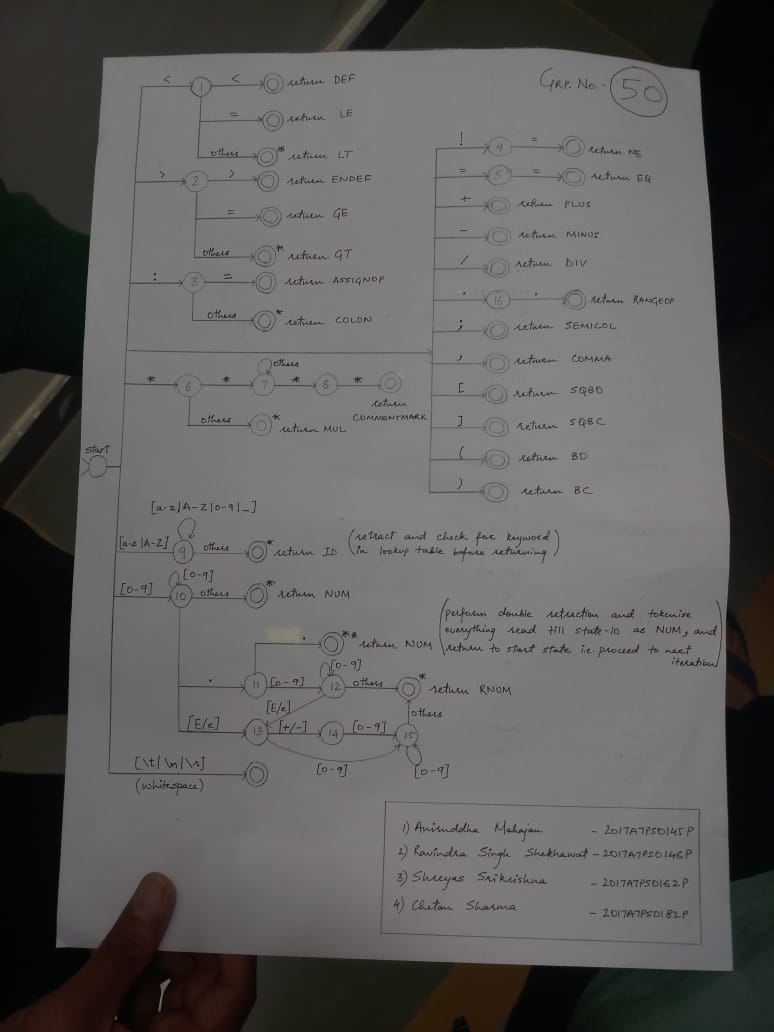 GRP. No. - 50
< 1 < return DEF
= return LE
others * return LT
> 2 > return ENDEF
= return GE
others * return GT
: 3 = return ASSIGNOP
others * return COLON
! 4 = return NE
= 5 = return EQ
+ return PLUS
- return MINUS
/ return DIV
. 16 . return RANGEOP
; return SEMICOL
, return COMMA
[ return SQBO
] return SQBC
( return BO
) return BC
others
* 6 * 7 * 8 * return
COMMENTMARK
others * return MUL
start
[a-z|A-Z|0-9|_]
[a-z|A-Z] 9 others * return ID (retract and check for keyword
in lookup table before returning)
[0-9]
[0-9] 10 others * return NUM
. ** return NUM
(perform double retraction and tokenise
everything read till state-10 as NUM, and
return to start state i.e. proceed to next
iteration)
[0-9]
. 11 [0-9] 12 others * return RNUM
[E/e] others
[E/e] 13 [+/-] 14 [0-9] 15
[0-9] [0-9]
[\t|\n|\s]
(whitespace)
1) Anirudha Mahajan - 2017A7PS0145P
2) Ravindra Singh Shekhawat - 2017A7PS0146P
3) Shreyas Srikrishna - 2017A7PS0162P
4) Chetan Sharma - 2017A7PS0182P